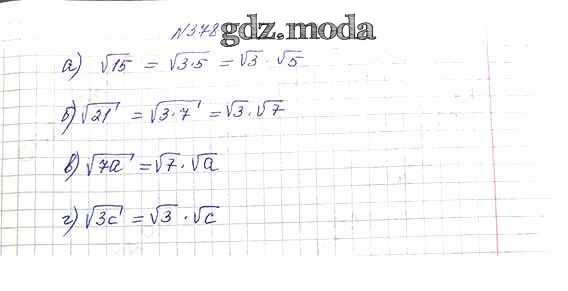 №378 gdz.moda
а) √15 = √3·5 = √3 · √5
б) √21 = √3·7 = √3 · √7
в) √7a = √7 · √a
г) √3c = √3 · √c